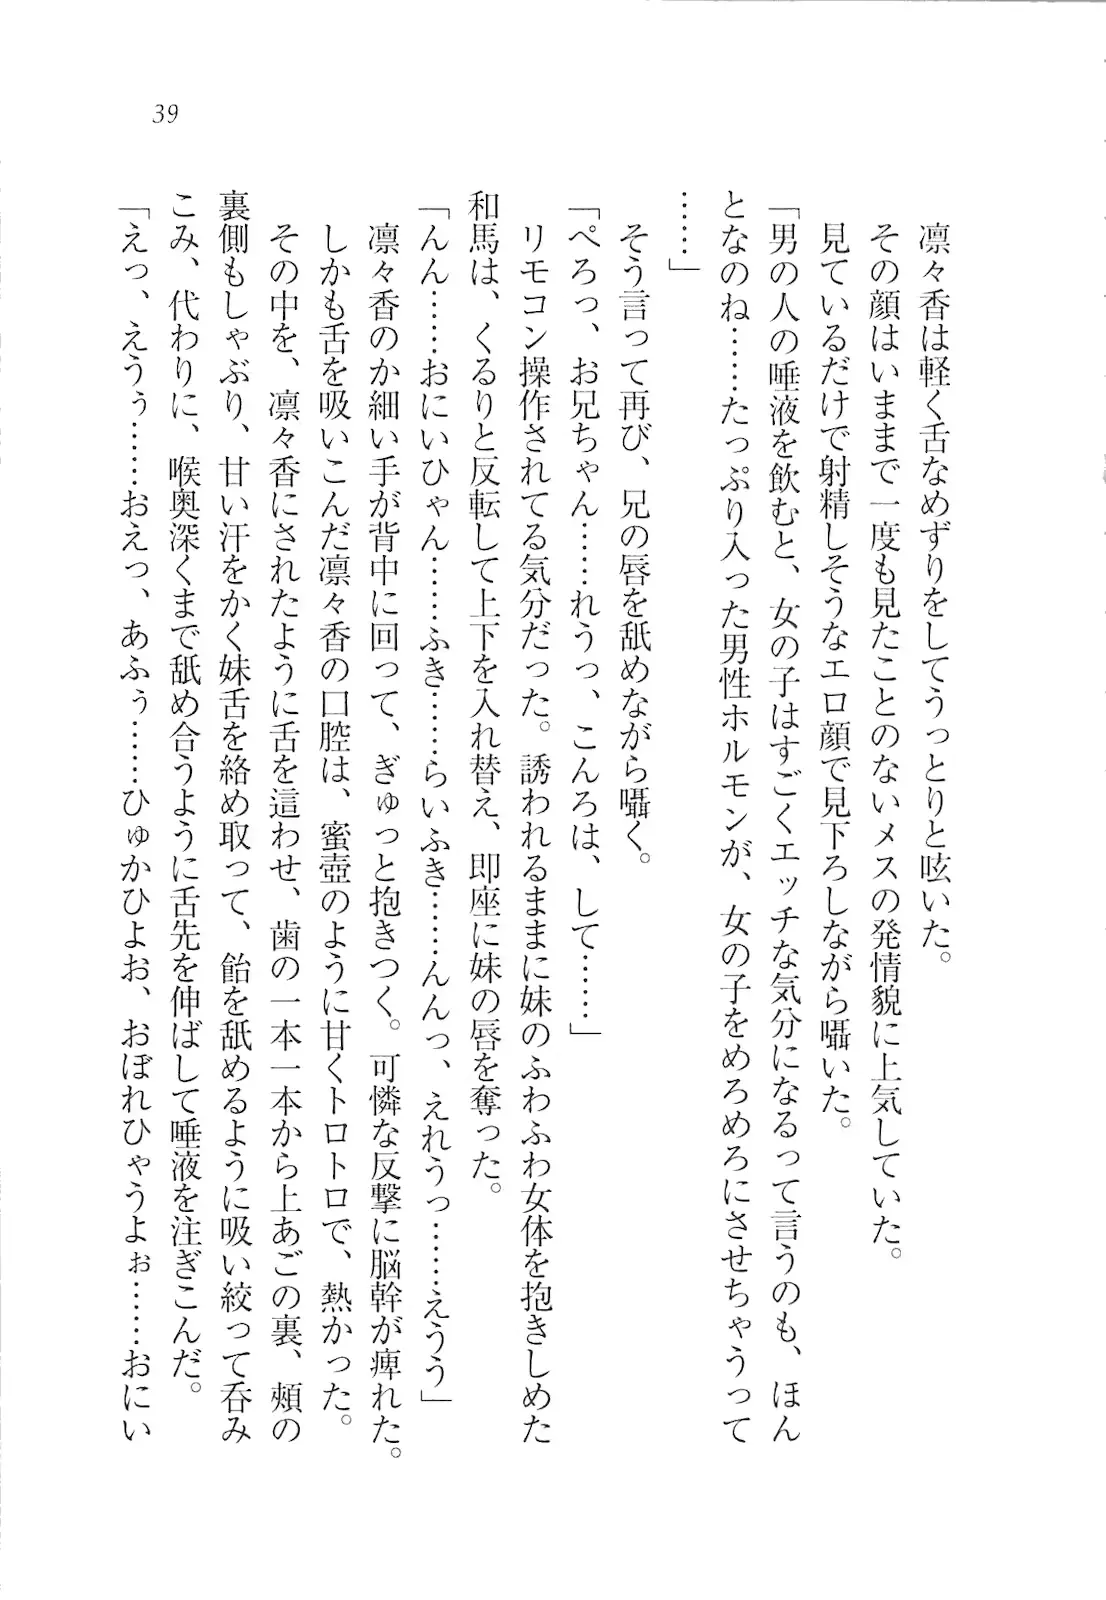 39
凛々香は軽く舌なめずりをしてうっとりと呟いた。
その顔はいままで一度も見たことのないメスの発情貌に上気していた。
見ているだけで射精しそうなエロ顔で見下ろしながら囁いた。
「男の人の唾液を飲むと、女の子はすごくエッチな気分になるって言うのも、ほん
となのね……たっぷり入った男性ホルモンが、女の子をめろめろにさせちゃうって
……」
そう言って再び、兄の唇を舐めながら囁く。
「ぺろっ、お兄ちゃん……れうっ、こんろは、して……」
リモコン操作されてる気分だった。誘われるままに妹のふわふわ女体を抱きしめた
和馬は、くるりと反転して上下を入れ替え、即座に妹の唇を奪った。
「んん……おにいひゃん……ふき……らいふき……んんっ、えれうっ……えうう」
凛々香のか細い手が背中に回って、ぎゅっと抱きつく。可憐な反撃に脳幹が痺れた。
しかも舌を吸いこんだ凛々香の口腔は、蜜壺のように甘くトロトロで、熱かった。
その中を、凛々香にされたように舌を這わせ、歯の一本一本から上あごの裏、頬の
裏側もしゃぶり、甘い汗をかく妹舌を絡め取って、飴を舐めるように吸い絞って呑み
こみ、代わりに、喉奥深くまで舐め合うように舌先を伸ばして唾液を注ぎこんだ。
「えっ、えうぅ……おえっ、あふぅ……ひゅかひよお、おぼれひゃうよぉ……おにい